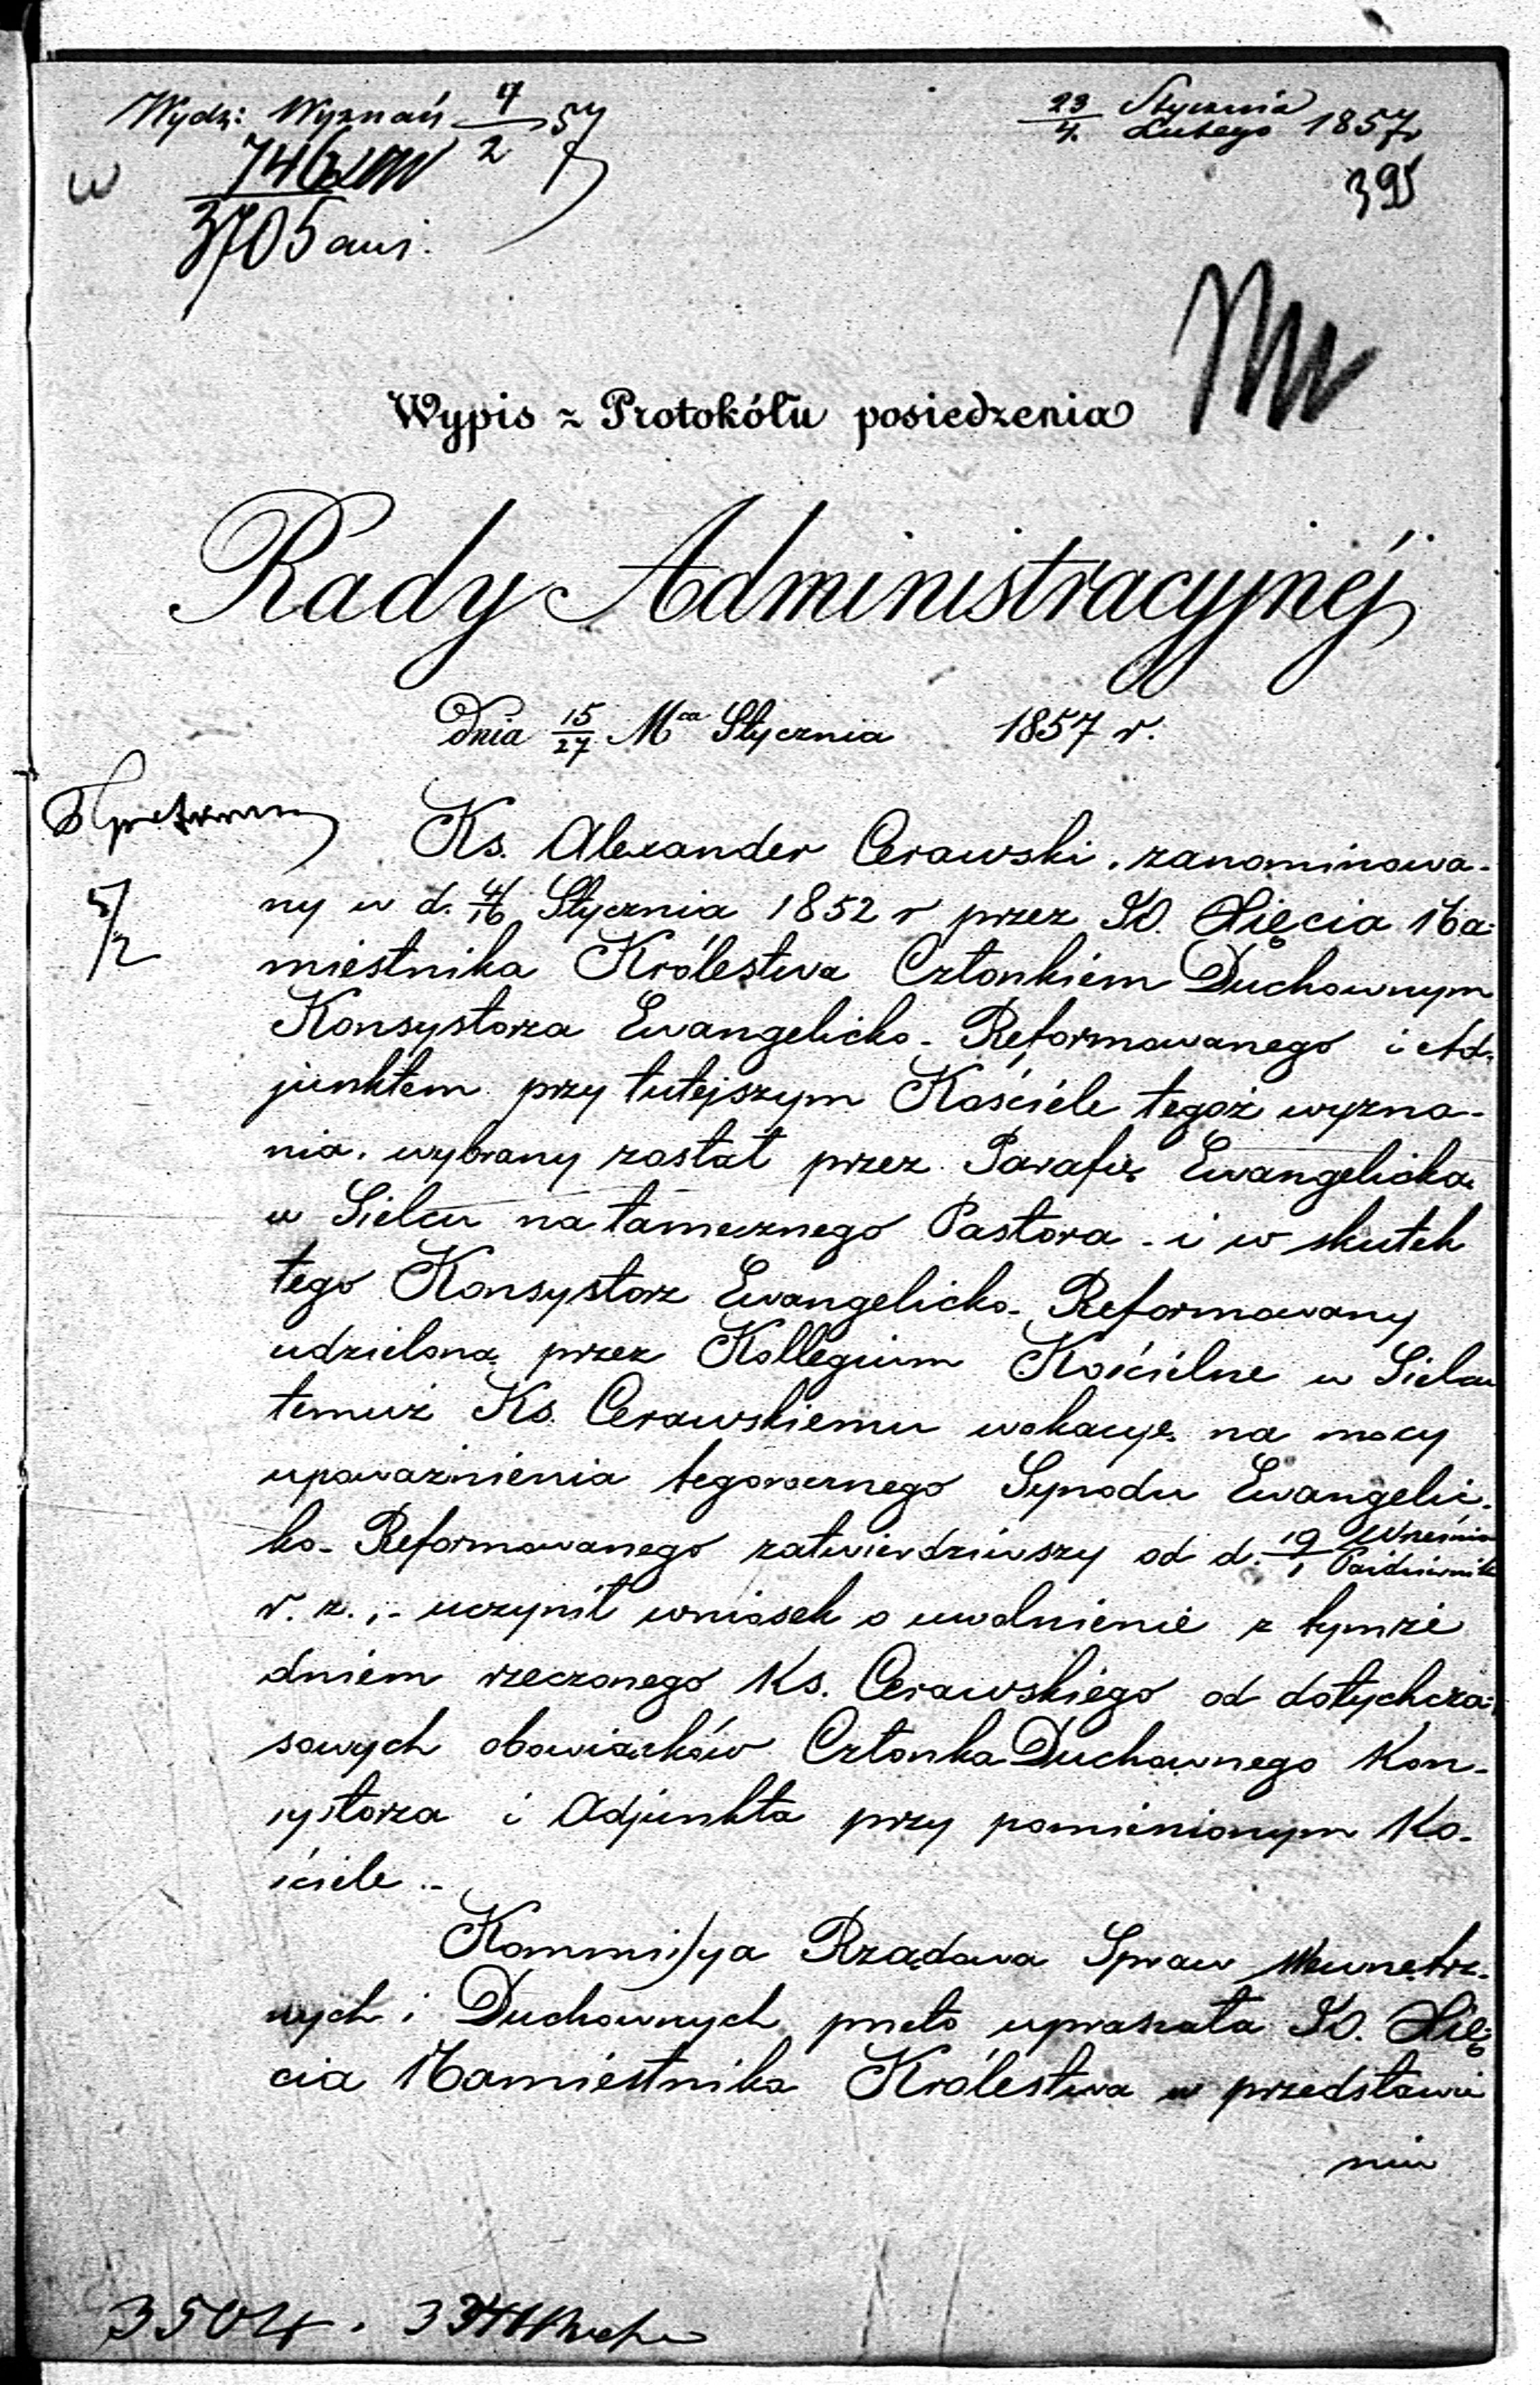 Wydz: Wyznań 7/2 57
23/4 Stycznia/Lutego 1857
395
w 746
3705
Wypis z Protokółu posiedzenia
Rady Administracyjnéj
Dnia 15/27 Mca Stycznia 1857 r.
5/2
Ks. Alexander Cerawski, zanominowa-
ny w d. 4/16 Stycznia 1852 r przez JO. Xięcia Na-
miestnika Królestwa Członkiem Duchownym
Konsystorza Ewangelicko-Reformowanego i Ad-
junktem przy tutejszym Kościele tegoż wyzna-
nia, wybrany został przez Parafię Ewangelicką
w Sielcu na tamecznego Pastora - i w skutek
tego Konsystorz Ewangelicko-Reformowany
udzieloną przez Kollegium Kościelne w Sielcu
temuż Ks. Cerawskiemu wokacyę na mocy
upoważnienia tegorocznego Synodu Ewangelic-
ko-Reformowanego zatwierdziwszy od d. 19/1 Września/Październik
r. z., - uczynił wniosek o uwolnienie z tymże
dniem rzeczonego Ks. Cerawskiego od dotychcza-
sowych obowiązków Członka Duchownego Kon-
systorza i Adjunkta przy pomienionym Ko-
ściele ..
Kommissya Rządowa Spraw Wewnętrz-
nych i Duchownych przeto upraszała JO. Xię-
cia Namiestnika Królestwa w przedstawie
niu
3504.